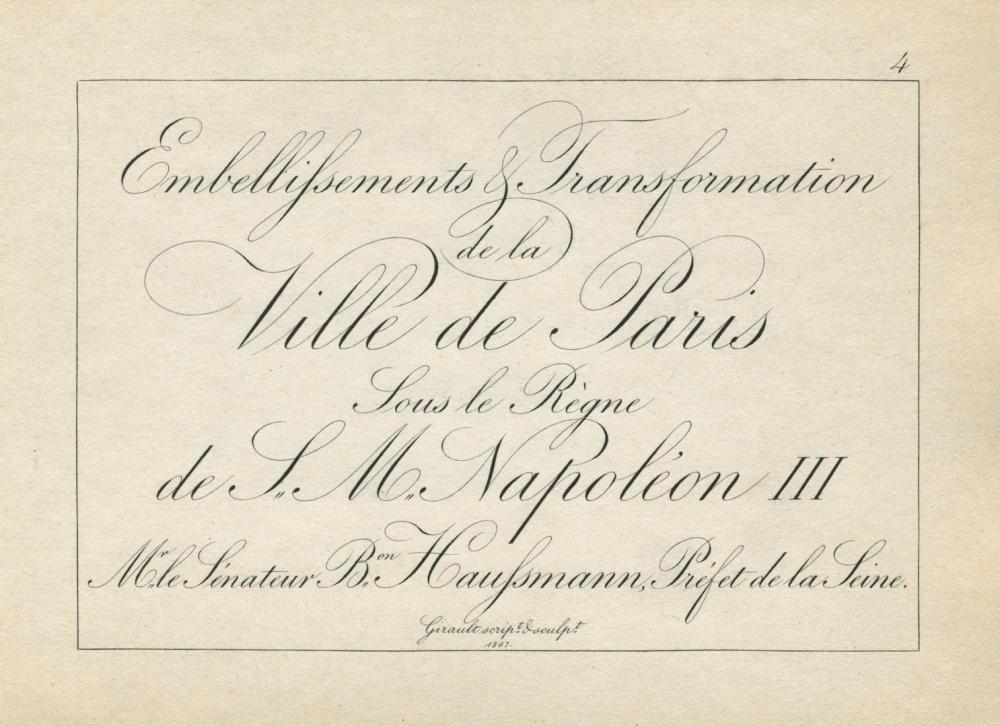 4
Embelliſsements & Transformation
de la
Ville de Paris
Sous le Règne
de S. M. Napoléon III
Mr. le Sénateur Bon. Hauſsmann, Préfet de la Seine.
Girault script. & sculpt.
1867.